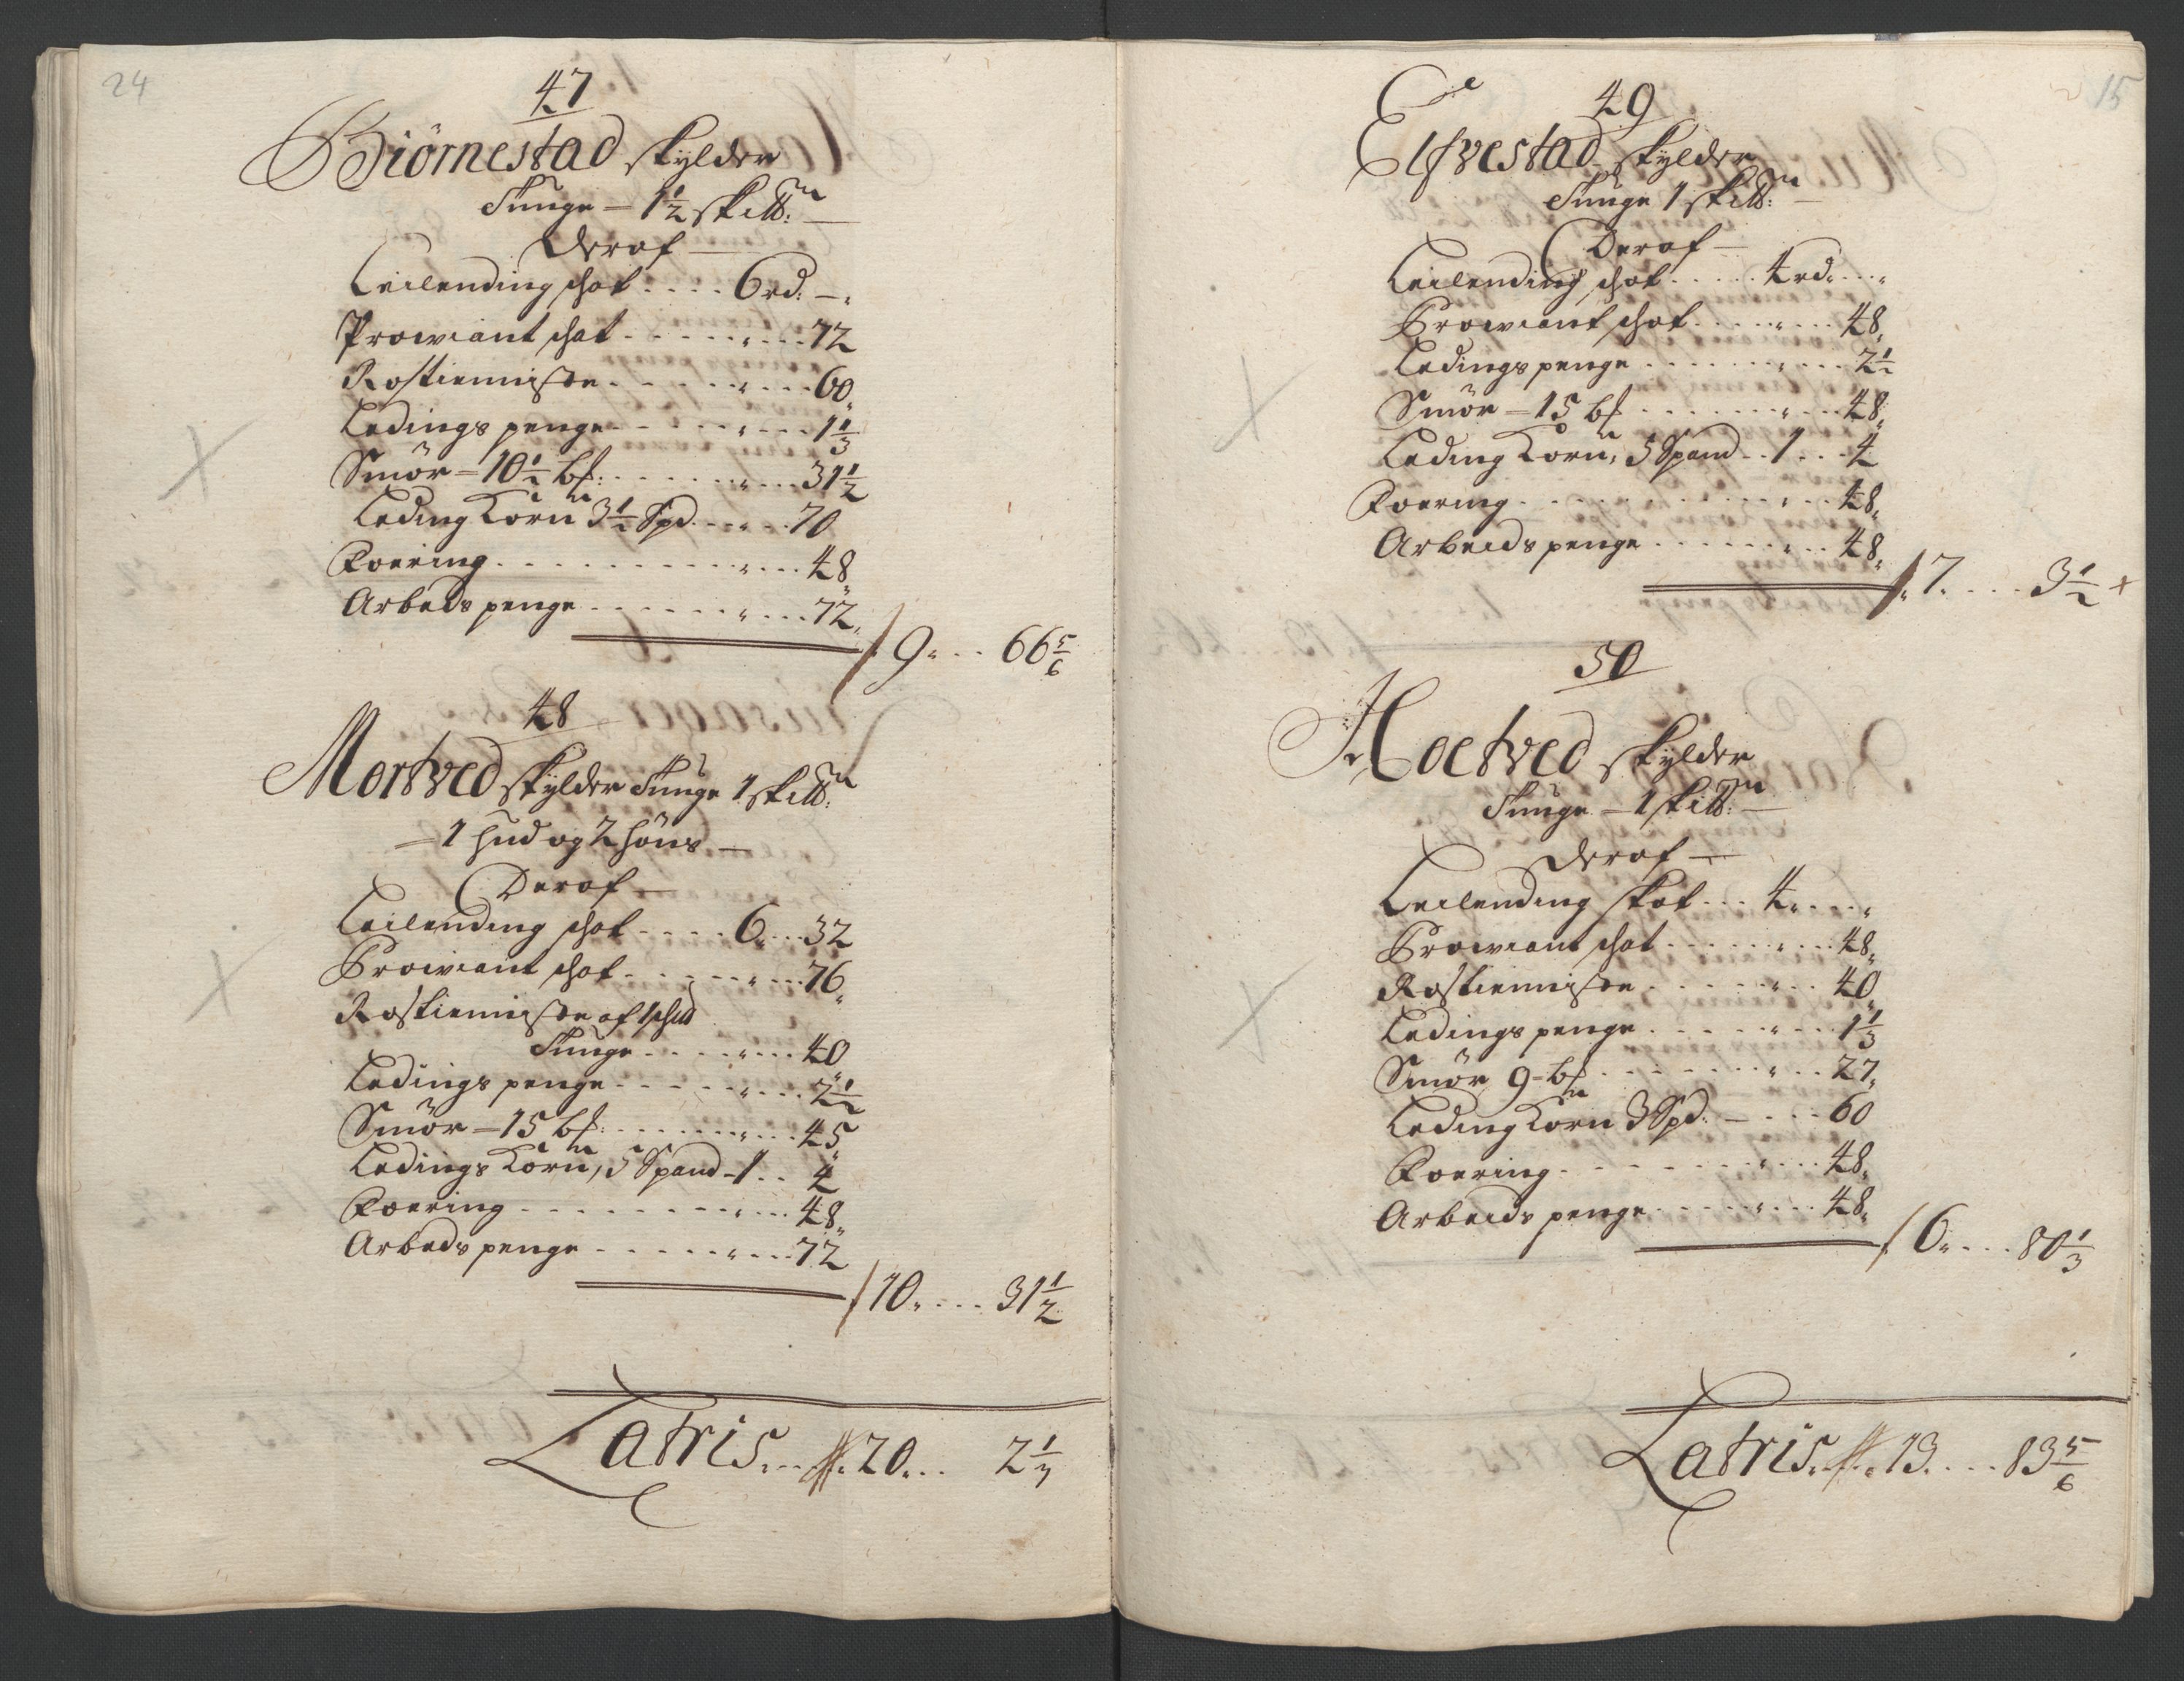 24
47
Biörnestad skylder
Tunge - 1½ skilln:
Deraf
Leilending schat .... 6 rd: -
Proviant schat ..... " ... 72
Rostieniste ..... " ... 60
Ledings penge ..... " ... 1⅓
Smör - 10½ bf: ..... " ... 31½
Leding Korn 3½ Spd ... " ... 70
Foering ........ " ... 48
Arbeds penge ...... " ... 72
9 ... 66⅚
48
Mortved skylder Tunge 1 skilln:
- 1 hud og 2 höns -
Deraf
Leilending schat .... 6 ... 32
Proviant schat ..... " ... 76
Rostieniste af 1 schd
Tunge .... " ... 40
Ledings penge ..... " ... 2½
Smör - 15 bf: ...... " ... 45
Ledings Korn, 5 Spand - 1 .. 4
Foering ........ " ... 48
Arbeds penge ..... " ... 72
10 .... 31½
Latris ... 20 ... 2⅓
15
49
Elfvestad skylder
Tunge 1 skilln:
Deraf
Leilending schat ..... 4 rd ... "
Proviant schat ..... " ... 48
Ledings penge ...... " ... 2½
Smör - 15 bf ...... " ... 48
Leding Korn, 5 Spand .. 1 ... 4
Foering ........ " ... 48
Arbeids penge ...... " .. 48
7 .... 3½
50
Hoetved skylder
Tunge - 1 skilln:
Deraf
Leilending skat ... 4 .... "
Proviant schat ...... " ... 48
Rostieniste ...... " .. 40
Ledings penge ..... " ... 1⅓
Smör 9 - bf ....... " .. 27
Leding Korn 3 Spd: - ... 60
Foering ....... " ... 48
Arbeids penge ..... " ... 48
6 .... 80⅓
Latris ... 13 .... 83⅚